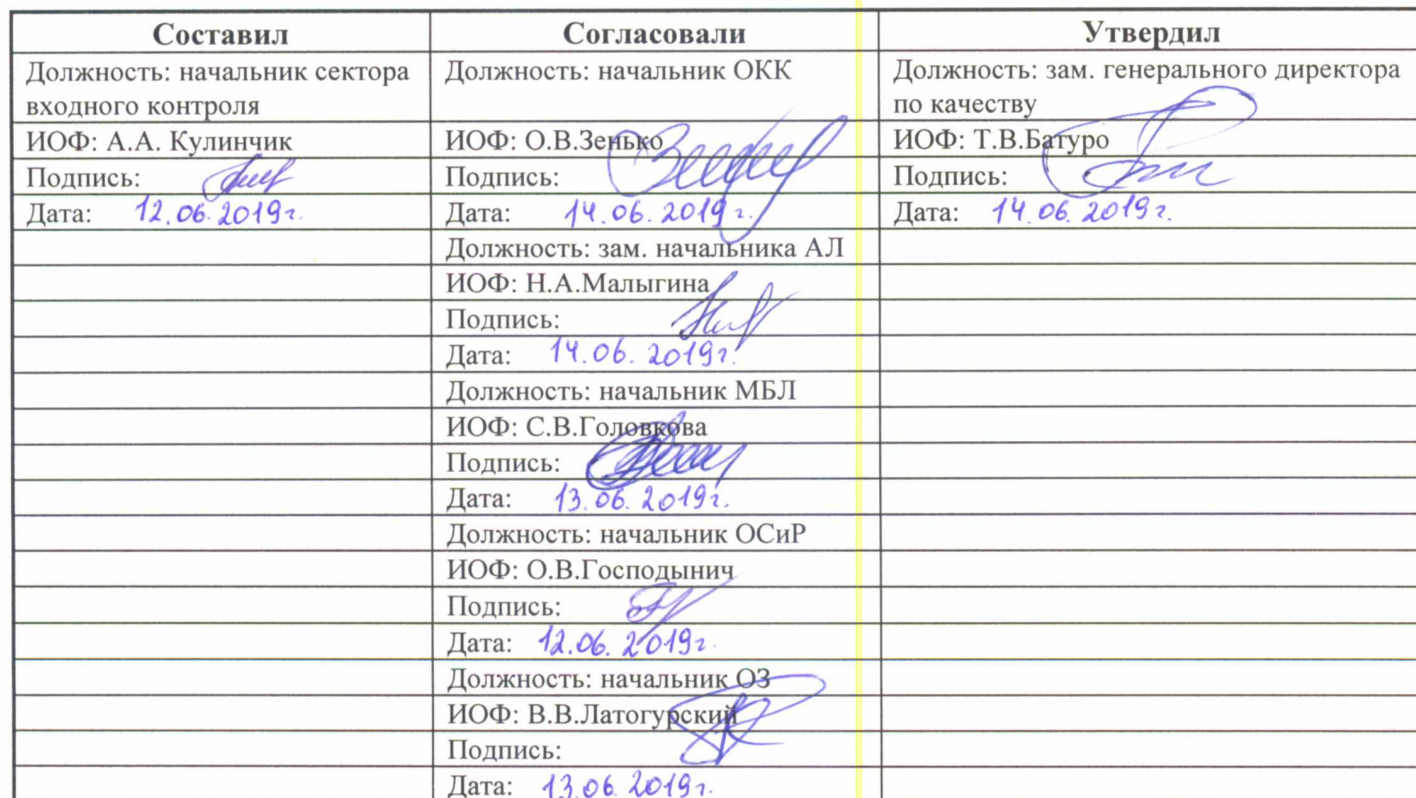 Составил Согласовали Утвердил
Должность: начальник сектора Должность: начальник ОКК Должность: зам. генерального директора
входного контроля по качеству
ИОФ: А.А. Кулинчик ИОФ: О.В.Зенько ИОФ: Т.В.Батуро
Подпись: Подпись: Подпись:
Дата: 12.06.2019г. Дата: 14.06.2019г. Дата: 14.06.2019г.
Должность: зам. начальника АЛ
ИОФ: Н.А.Малыгина
Подпись:
Дата: 14.06.2019г.
Должность: начальник МБЛ
ИОФ: С.В.Головкова
Подпись:
Дата: 13.06.2019г.
Должность: начальник ОСиР
ИОФ: О.В.Господынич
Подпись:
Дата: 12.06.2019г.
Должность: начальник ОЗ
ИОФ: В.В.Латогурский
Подпись:
Дата: 13.06.2019г.